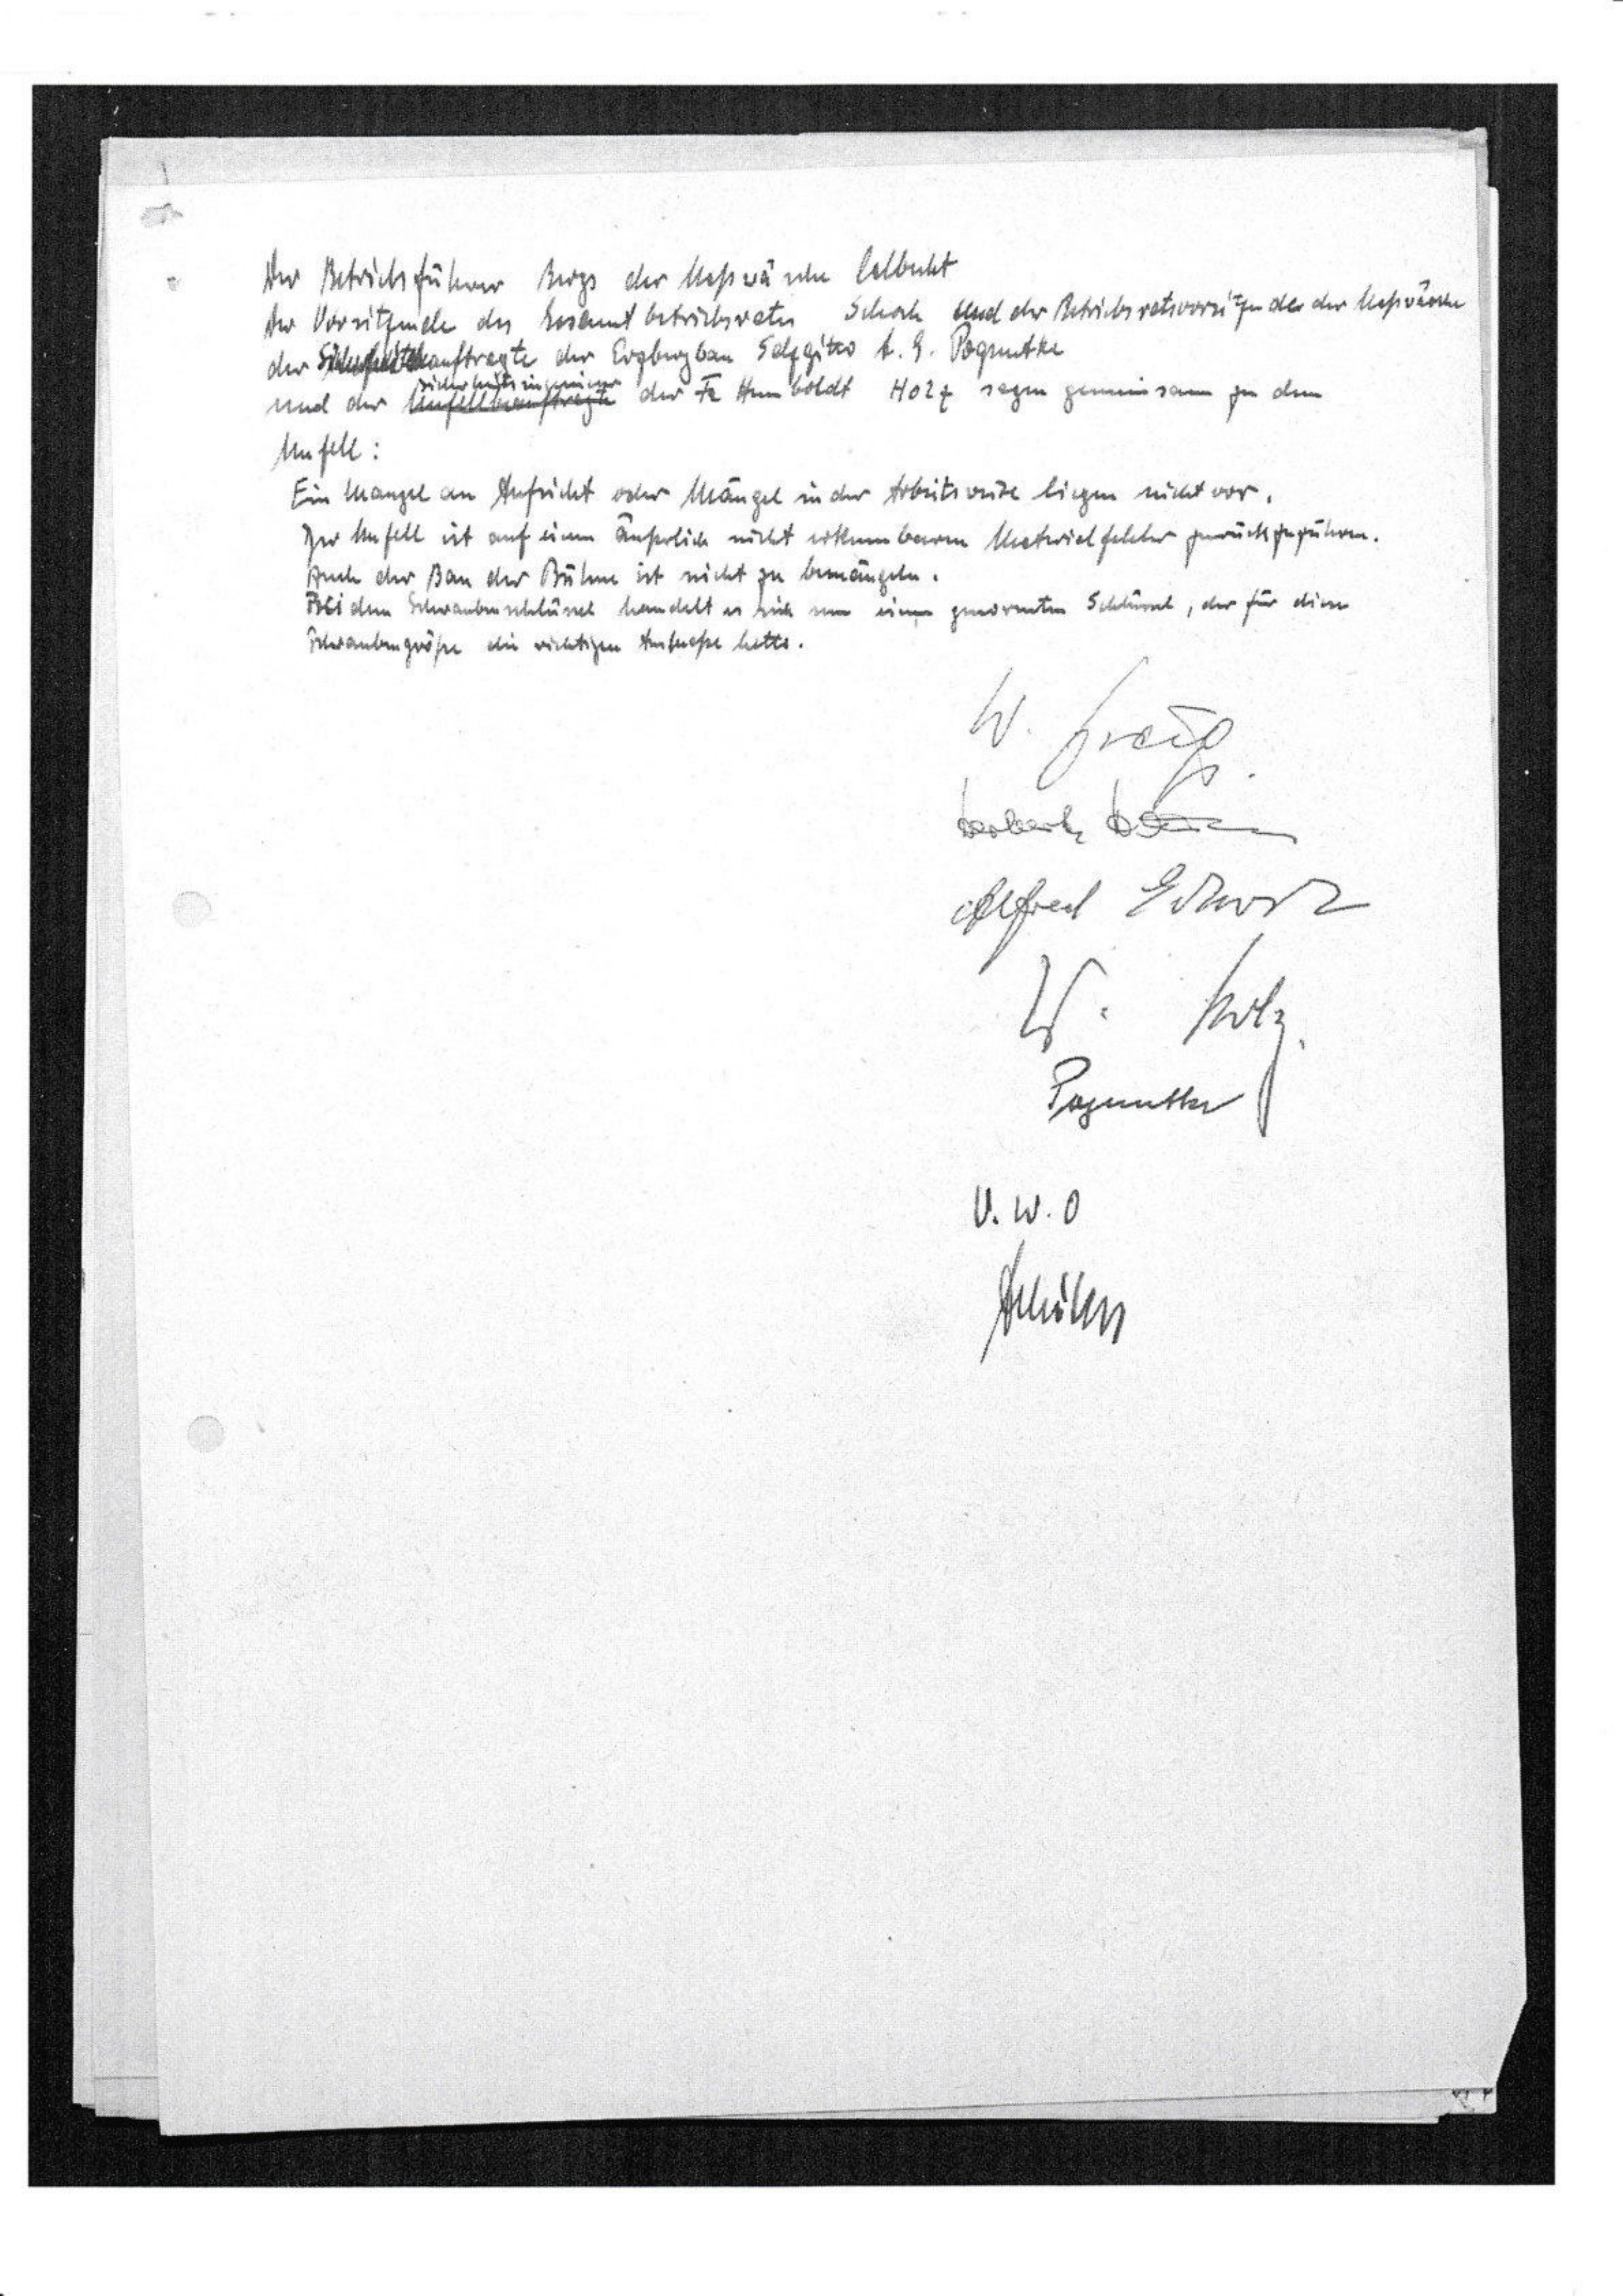 Der Betriebsführer Bergs der Naßwäsche Calbecht
Der Vorsitzende des Gesamtbetriebsrates Schock und der Betriebsratsvorsitzende der Naßwäsche
der Sicherheitsbeauftragte der Erzbergbau Salzgitter A. G. Pogruntke
Sicherheitsingenieur
und der Unfallbeauftragte der Fa Humboldt Holz sagen gemeinsam zu dem
Unfall:
Ein Mangel an Aufsicht oder Mängel in der Arbeitsweise liegen nicht vor.
Der Unfall ist auf einen äußerlich nicht erkennbaren Materialfehler zurückzuführen.
Auch der Bau der Bühne ist nicht zu bemängeln.
Bei dem Schraubenschlüssel handelt es sich um einen genormten Schlüssel, der für diese
Schraubengröße die richtigen Ausmaße hatte.
W.
Alfred
W. Holz
V. W. O